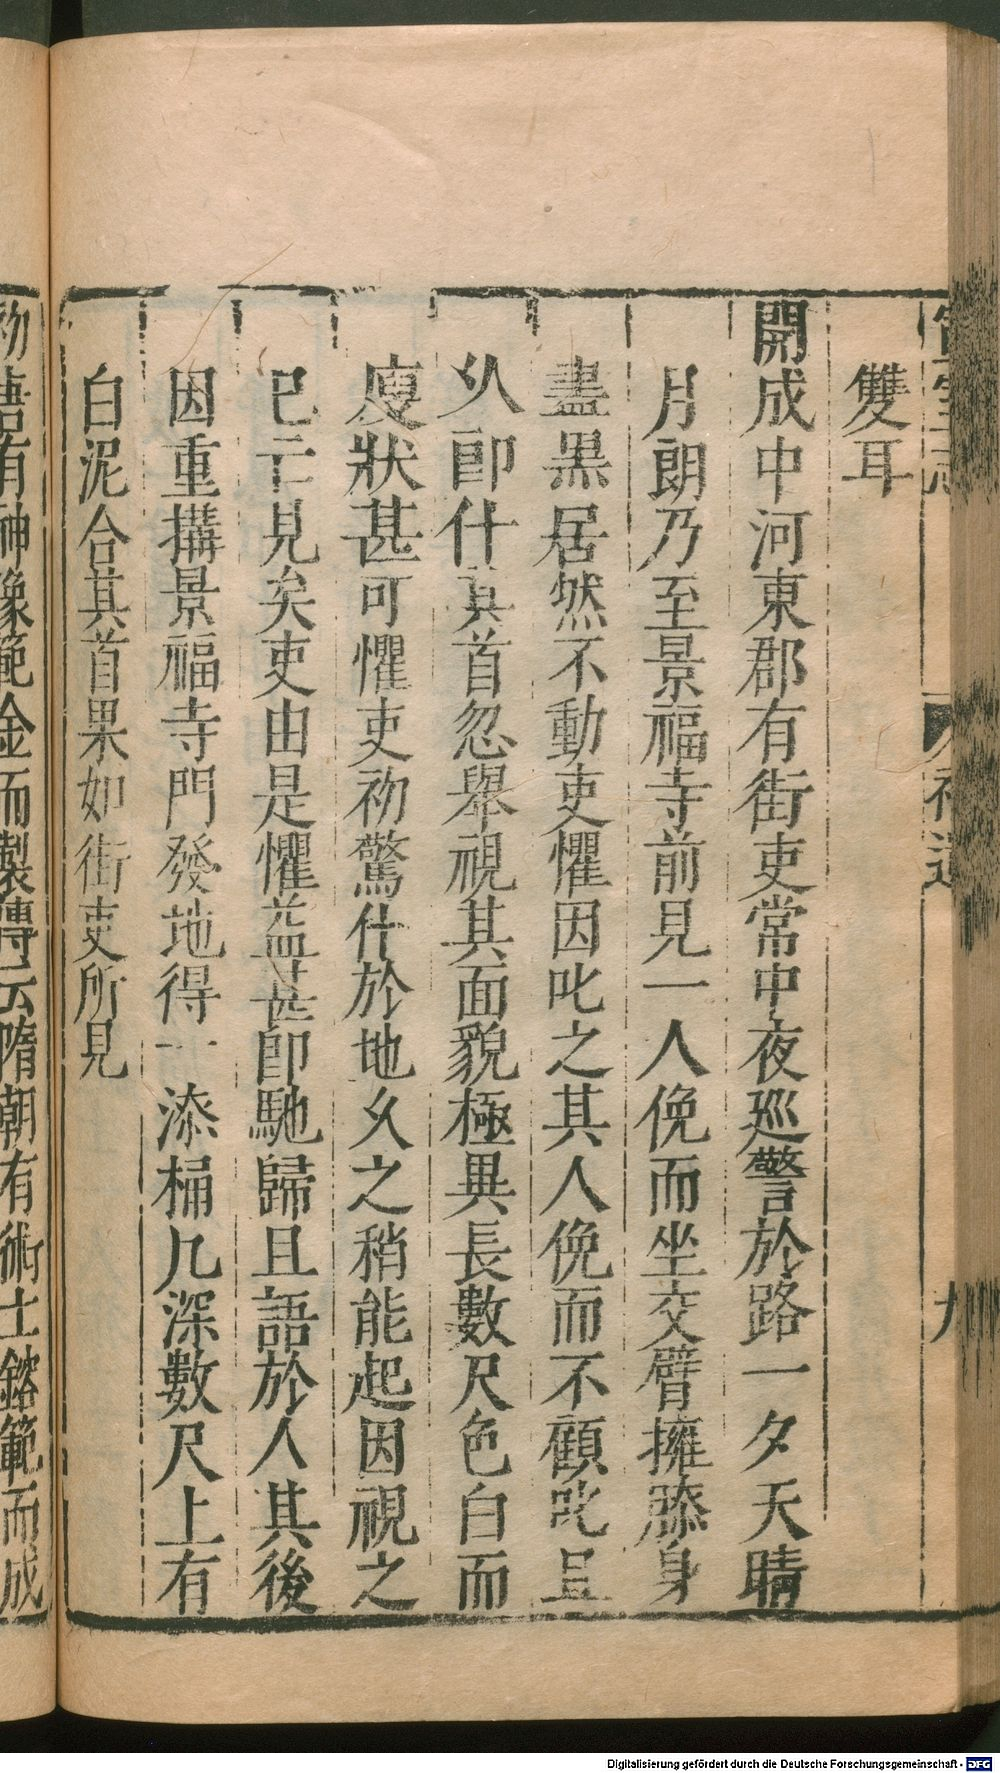 雙耳
開成中河東郡有街吏常中夜廵警於路一夕天晴
月朗乃至景福寺前見一人俛而坐交臂擁膝身
盡黑居然不動吏懼因叱之其人俛而不顧叱且
乆即什其首忽舉視其面貌極異長數尺色白而
廋狀甚可懼吏初驚什於地乆之稍能起因視之
已亡見矣吏由是懼益甚卽馳歸且語於人其後
因重搆景福寺門發地得一漆桶凡深數尺上有
白泥合其首果如街吏所見
初語有神像範金而製傳云隋朝有術士鎔範而成
Digitalisierung gefördert durch die Deutsche Forschungsgemeinschaft - DFG